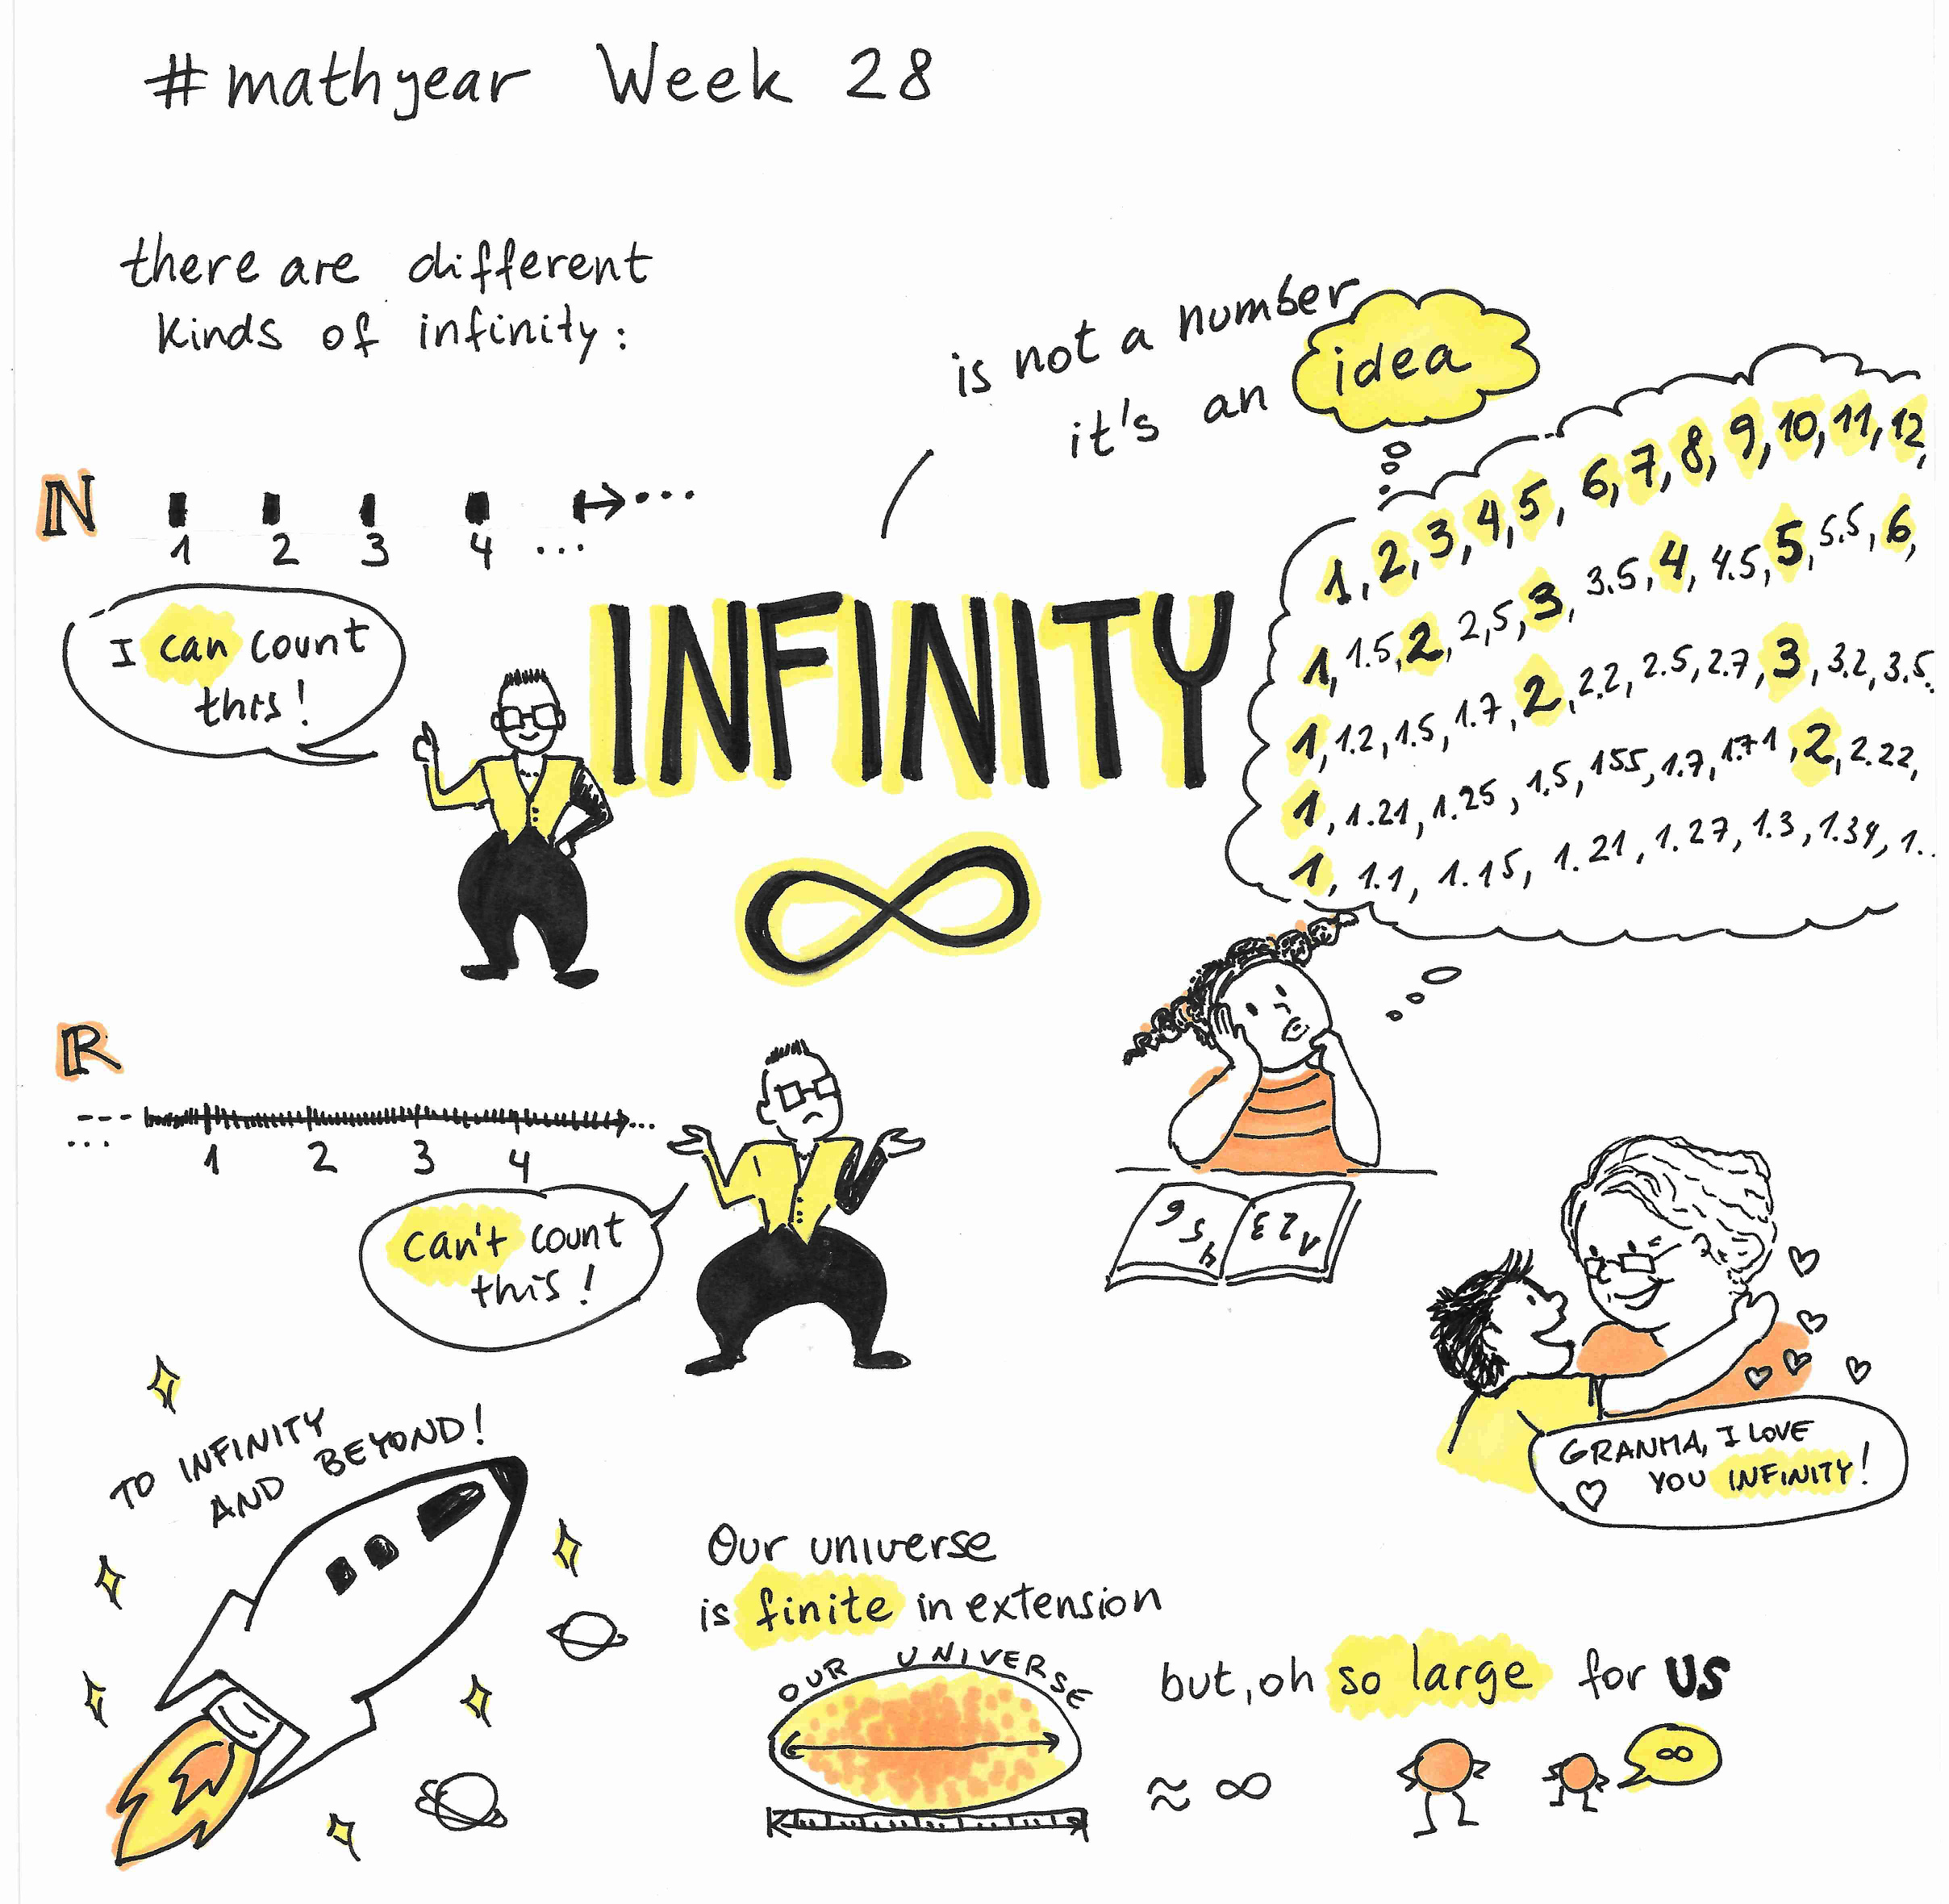 #mathyear Week 28
there are different
kinds of infinity:
is not a number
it's an idea
N
1 2 3 4 ...
I can count
this!
INFINITY
∞
1, 2, 3, 4, 5, 6, 7, 8, 9, 10, 11, 12,
1, 1.5, 2, 2,5, 3, 3.5, 4, 4.5, 5, 5.5, 6,
1, 1.2, 1.5, 1.7, 2, 2.2, 2.5, 2.7, 3, 3.2, 3.5..
1, 1.21, 1.25, 1.5, 155, 1.7, 1.71, 2, 2.22,
1, 1.1, 1.15, 1.21, 1.27, 1.3, 1.34, 1..
R
... 1 2 3 4 ...
can't count
this!
1 2 3
4 5 6
GRANMA, I LOVE
YOU INFINITY!
TO INFINITY
AND BEYOND!
Our universe
is finite in extension
OUR UNIVERSE
≈ ∞
but, oh so large for US
∞